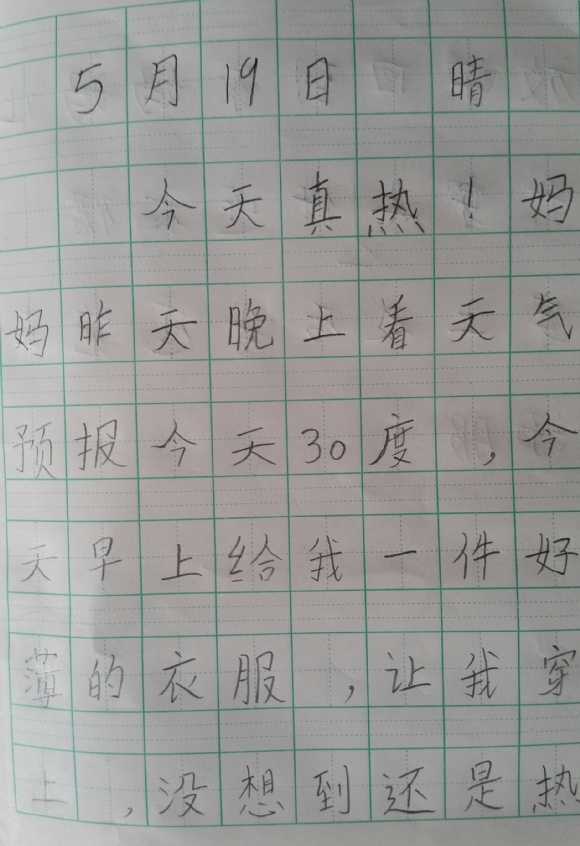 5月19日 晴
今天真热！妈
妈昨天晚上看天气
预报今天30度，今
天早上给我一件好
薄的衣服，让我穿
上，没想到还是热